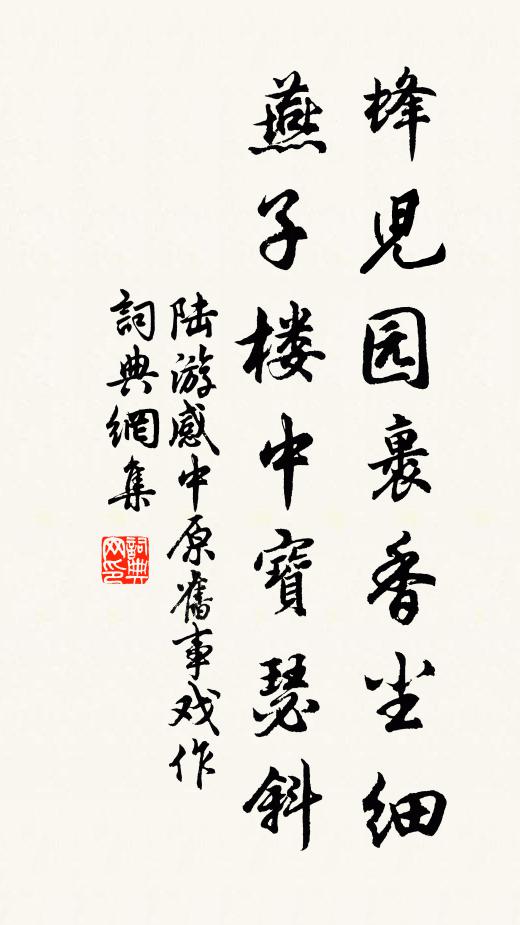 蜂児园裏香尘细
燕子楼中寶瑟斜
陆游感中原舊事戏作
詞典網集
詞典网印